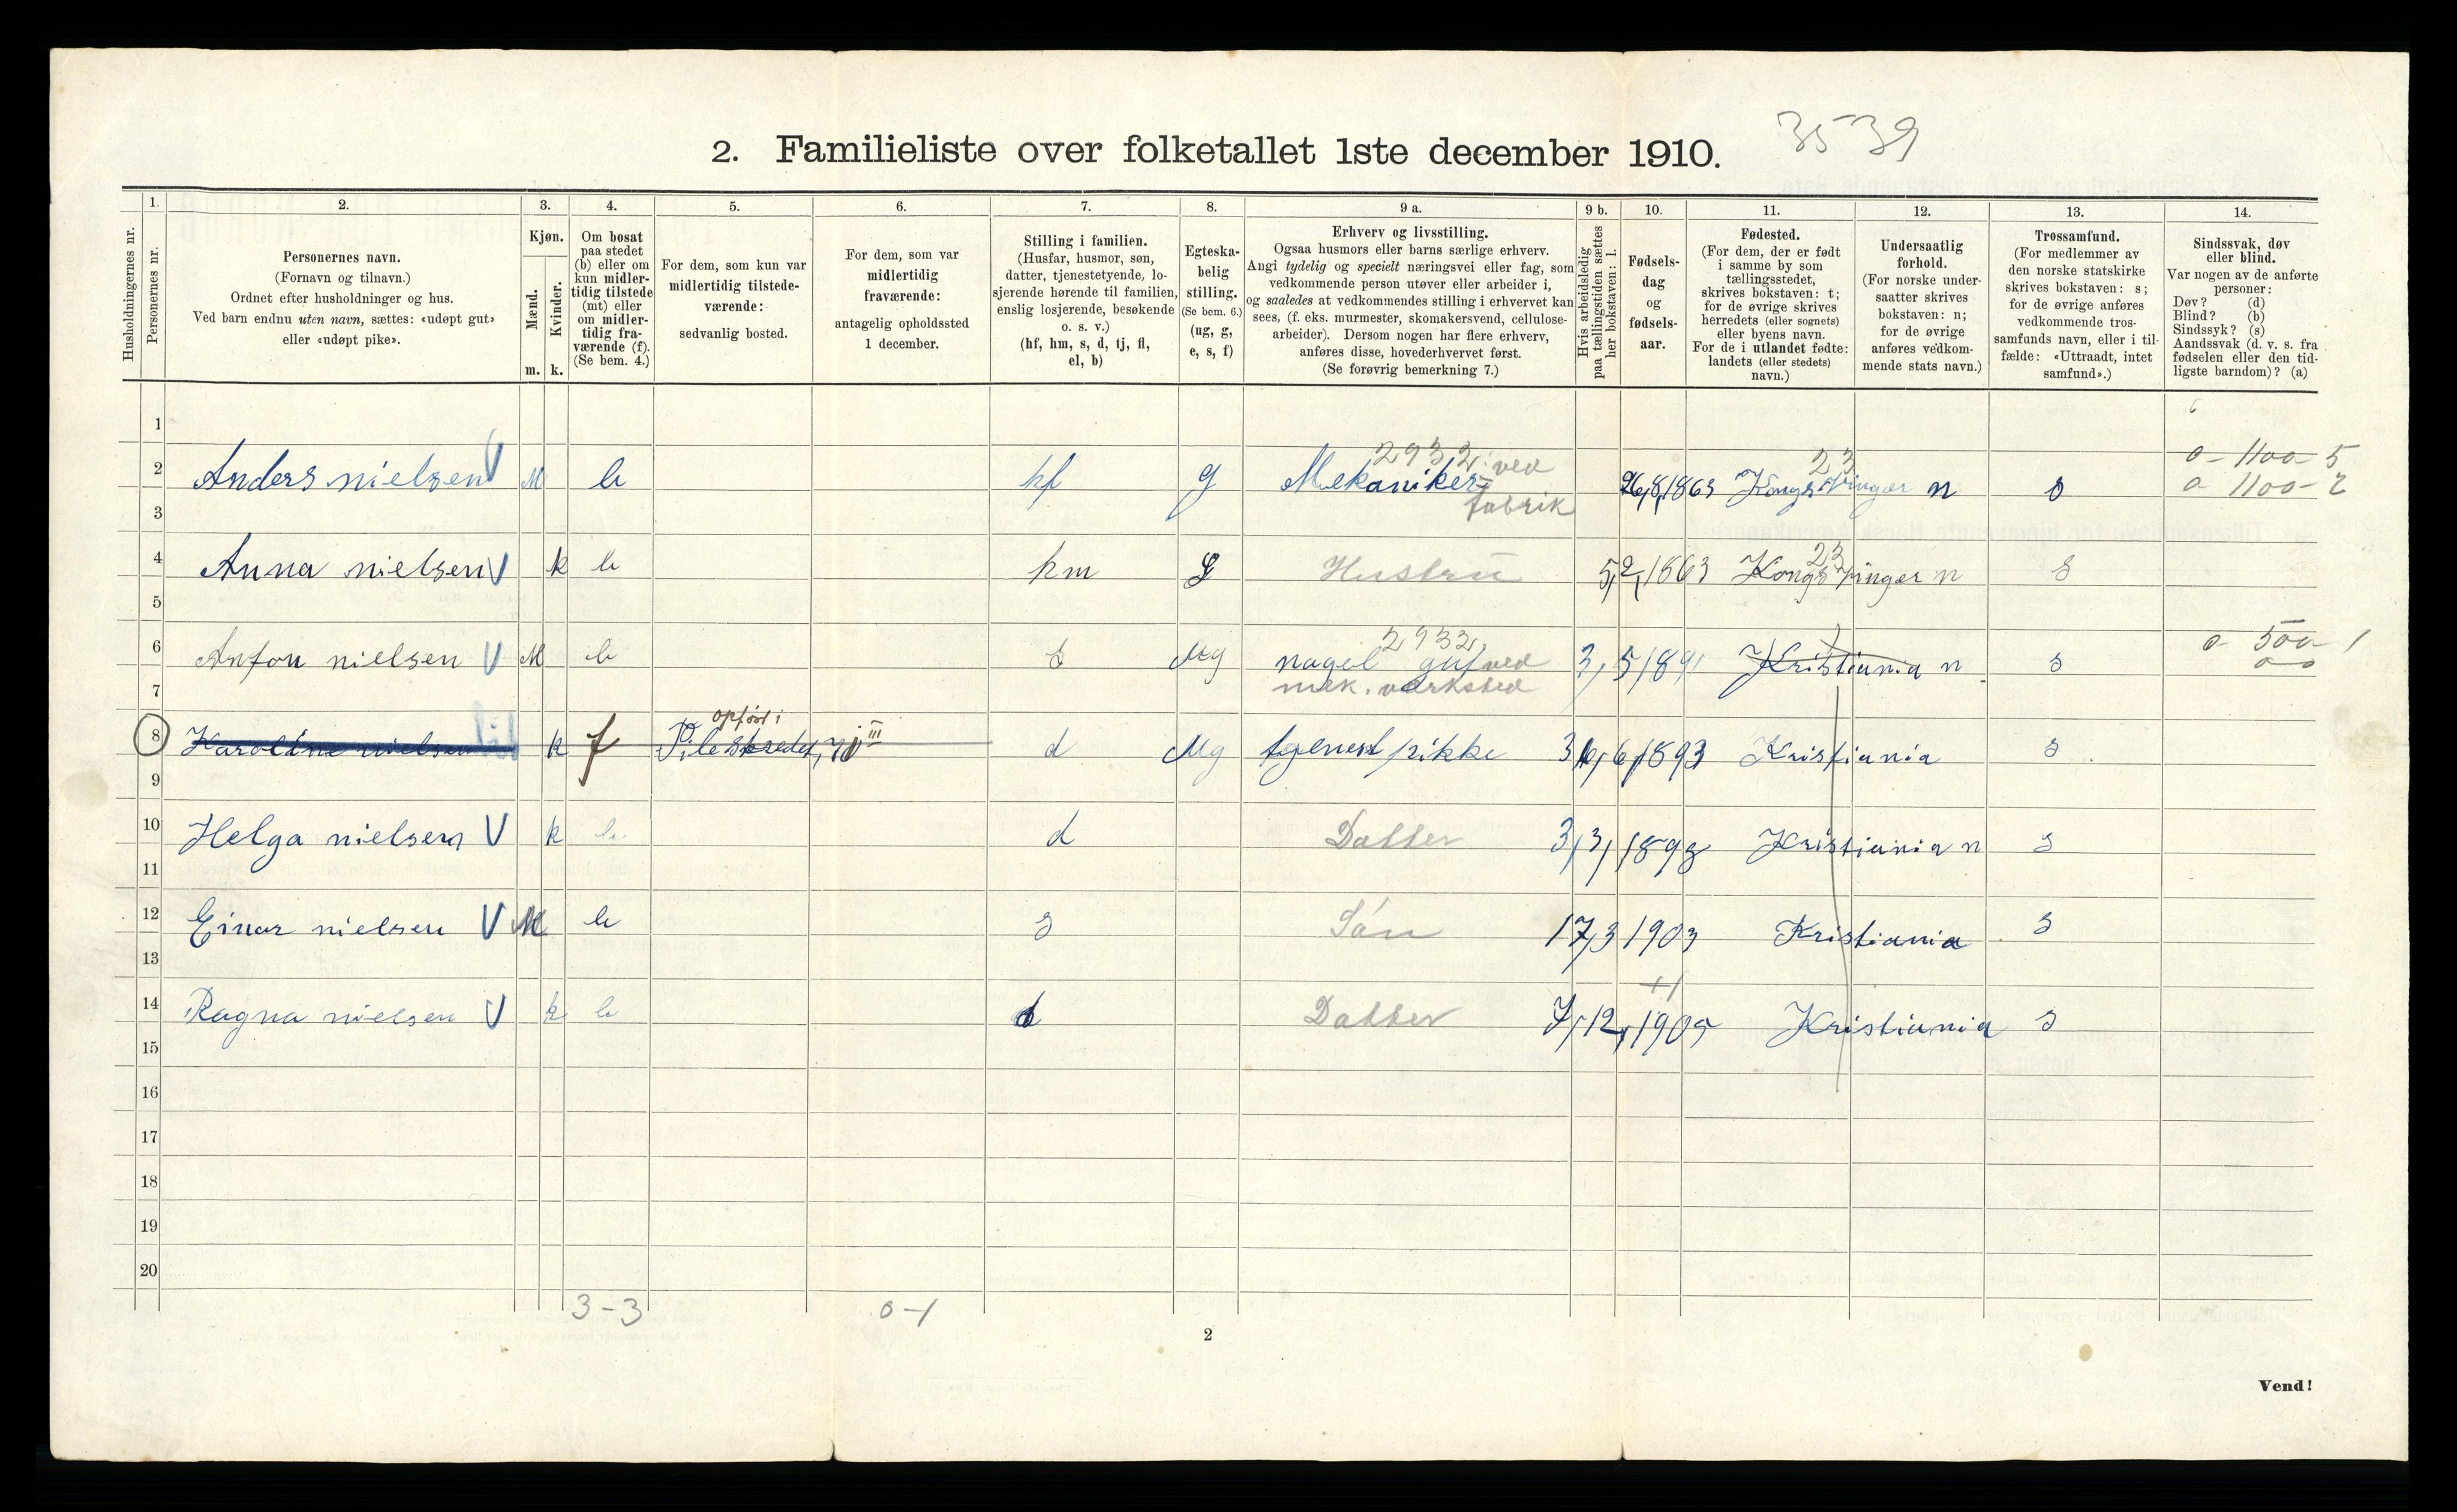 2. Familieliste over folketallet 1ste december 1910.
3539
1.
2.
3.
4.
5.
6.
7.
8.
9 a.
9 b.
10.
11.
12.
13.
14.
Husholdningernes nr.
Personernes nr.
Personernes navn.
(Fornavn og tilnavn.)
Ordnet efter husholdninger og hus.
Ved barn endnu uten navn, sættes: «udøpt gut»
eller «udøpt pike».
Kjøn.
Mænd.
Kvinder.
m. k.
Om bosat
paa stedet
(b) eller om
kun midler-
tidig tilstede
(mt) eller
om midler-
tidig fra-
værende (f).
(Se bem. 4.)
For dem, som kun var
midlertidig tilstede-
værende:
sedvanlig bosted.
For dem, som var
midlertidig
fraværende:
antagelig opholdssted
1 december.
Stilling i familien.
(Husfar, husmor, søn,
datter, tjenestetyende, lo-
sjerende hørende til familien,
enslig losjerende, besøkende
o. s. v.)
(hf, hm, s, d, tj, fl,
el, b)
Egteska-
belig
stilling.
(Se bem. 6.)
(ug, g,
e, s, f)
Erhverv og livsstilling.
Ogsaa husmors eller barns særlige erhverv.
Angi tydelig og specielt næringsvei eller fag, som
vedkommende person utøver eller arbeider i,
og saaledes at vedkommendes stilling i erhvervet kan
sees, (f. eks. murmester, skomakersvend, cellulose-
arbeider). Dersom nogen har flere erhverv,
anføres disse, hovederhvervet først.
(Se forøvrig bemerkning 7.)
Hvis arbeidsledig
paa tællingstiden sættes
her bokstaven: l.
Fødsels-
dag
og
fødsels-
aar.
Fødested.
(For dem, der er født
i samme by som
tællingsstedet,
skrives bokstaven: t;
for de øvrige skrives
herredets (eller sognets)
eller byens navn.
For de i utlandet fødte:
landets (eller stedets)
navn.)
Undersaatlig
forhold.
(For norske under-
saatter skrives
bokstaven: n;
for de øvrige
anføres vedkom-
mende stats navn.)
Trossamfund.
(For medlemmer av
den norske statskirke
skrives bokstaven: s;
for de øvrige anføres
vedkommende tros-
samfunds navn, eller i til-
fælde: «Uttraadt, intet
samfund».)
Sindssvak, døv
eller blind.
Var nogen av de anførte
personer:
Døv? (d)
Blind? (b)
Sindssyk? (s)
Aandssvak (d. v. s. fra
fødselen eller den tid-
ligste barndom)? (a)
1
2932 23 0 - 1100 - 5
2 Anders nielsen V M b hf g Mekaniker ved Kongsvinger n s 0 1100 - 2
3 fabrik
23
4 Anna nielsen V k b hm g Hustru 5,2,1863 Kongsvinger n s
5
2932 0 500 1
6 Anton nielsen V M b s Ug ved 3,5,1891 Kristiania n s 00
7 mek. værksted
opført i
8 Karoline nielsen k f Pilestredet, 70 III d Ug tjenest pikke 6,1893 Kristiania s
9
10 Helga nielsen V k b d Datter 3,3,1898 Kristiania n s
11
12 Einar nielsen V M b s Søn 17,3 1903 Kristiania s
13
14 Ragna nielsen V k b d Datter 7,12,1905 Kristiania s
15
16
17
18
19
20
3 - 3 0 - 1
2
Vend!